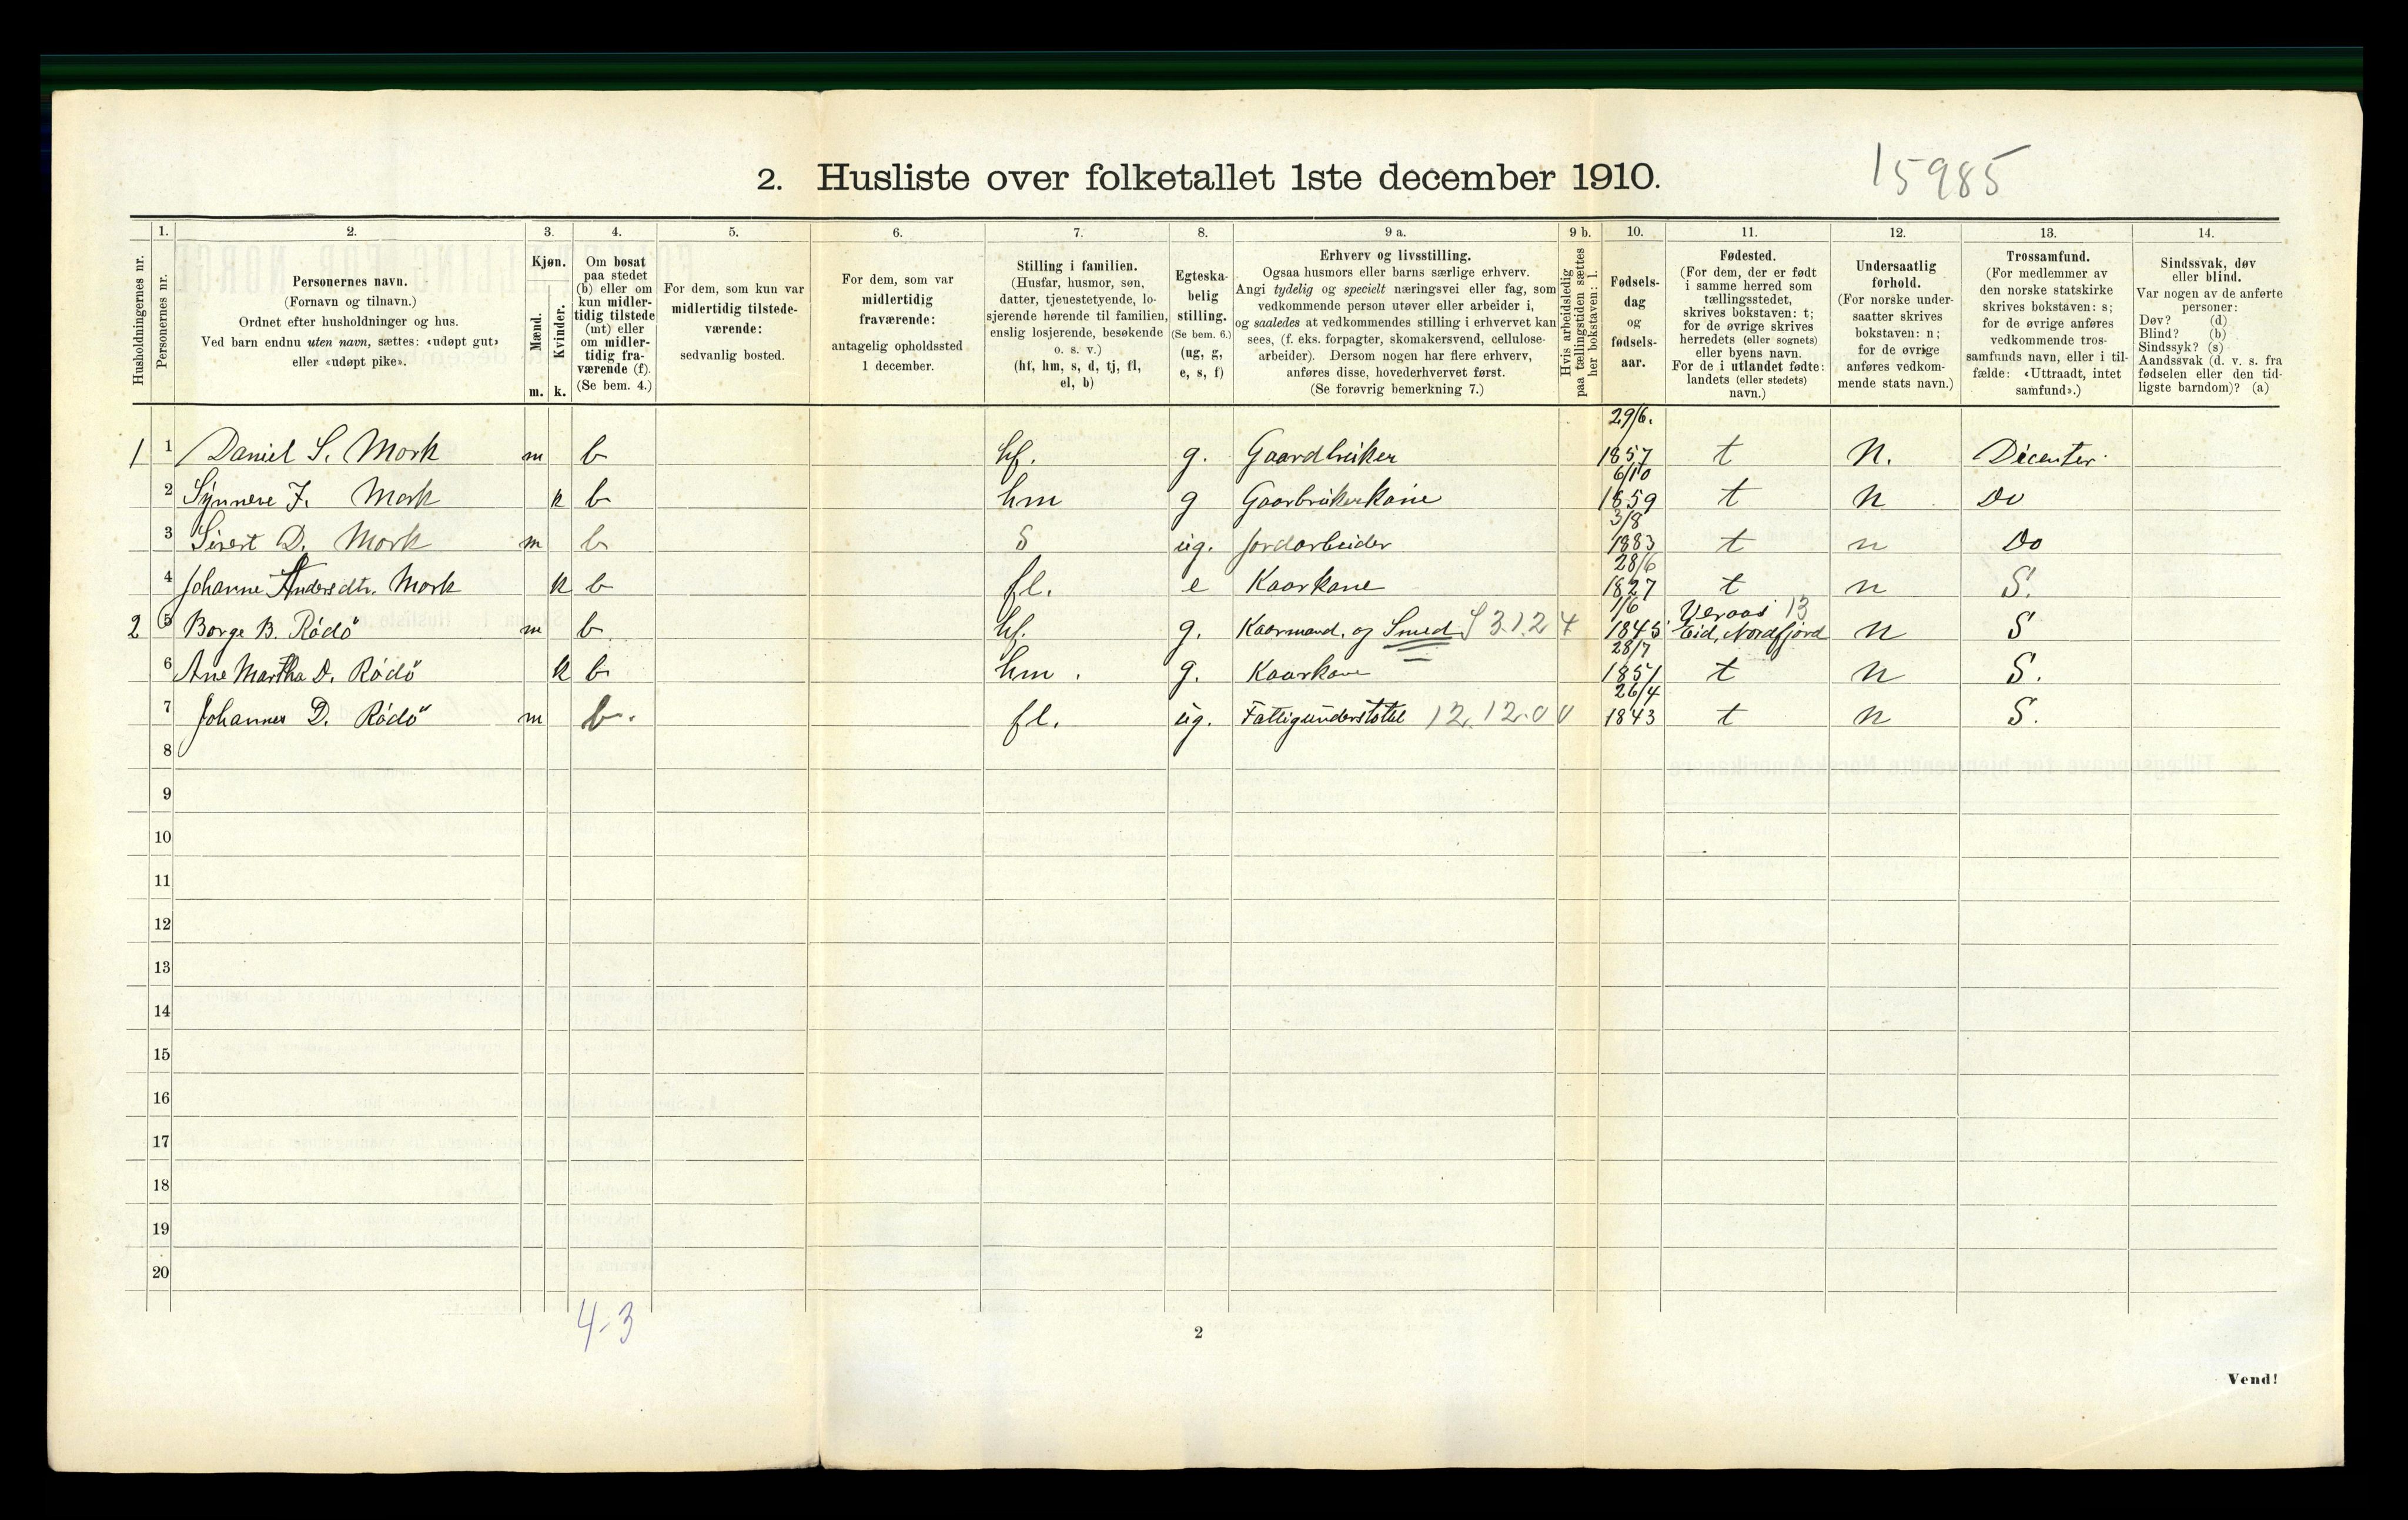 2. Husliste over folketallet 1ste december 1910.
15985
1. 2. 3. 4. 5. 6. 7. 8. 9 a. 9 b. 10. 11. 12. 13. 14.
Husholdningernes nr.
Personernes nr.
Personernes navn.
(Fornavn og tilnavn.)
Ordnet efter husholdninger og hus.
Ved barn endnu uten navn, sættes: «udøpt gut»
eller «udøpt pike».
Kjøn.
Mænd.
Kvinder.
m. k.
Om bosat
paa stedet
(b) eller om
kun midler-
tidig tilstede
(mt) eller
om midler-
tidig fra-
værende (f).
(Se bem. 4.)
For dem, som kun var
midlertidig tilstede-
værende:
sedvanlig bosted.
For dem, som var
midlertidig
fraværende:
antagelig opholdssted
1 december.
Stilling i familien.
(Husfar, husmor, søn,
datter, tjenestetyende, lo-
sjerende hørende til familien,
enslig losjerende, besøkende
o. s. v.)
(hf, hm, s, d, tj, fl,
el, b)
Egteska-
belig
stilling.
(Se bem. 6.)
(ug, g,
e, s, f)
Erhverv og livsstilling.
Ogsaa husmors eller barns særlige erhverv.
Angi tydelig og specielt næringsvei eller fag, som
vedkommende person utøver eller arbeider i,
og saaledes at vedkommendes stilling i erhvervet kan
sees, (f. eks. forpagter, skomakersvend, cellulose-
arbeider). Dersom nogen har flere erhverv,
anføres disse, hovederhvervet først.
(Se forøvrig bemerkning 7.)
Hvis arbeidsledig
paa tællingstiden sættes
her bokstaven: l.
Fødsels-
dag
og
fødsels-
aar.
Fødested.
(For dem, der er født
i samme herred som
tællingsstedet,
skrives bokstaven: t;
for de øvrige skrives
herredets (eller sognets)
eller byens navn.
For de i utlandet fødte:
landets (eller stedets)
navn.)
Undersaatlig
forhold.
(For norske under-
saatter skrives
bokstaven: n;
for de øvrige
anføres vedkom-
mende stats navn.)
Trossamfund.
(For medlemmer av
den norske statskirke
skrives bokstaven: s;
for de øvrige anføres
vedkommende tros-
samfunds navn, eller i til-
fælde: «Uttraadt, intet
samfund».)
Sindssvak, døv
eller blind.
Var nogen av de anførte
personer:
Døv? (d)
Blind? (b)
Sindssyk? (s)
Aandssvak (d. v. s. fra
fødselen eller den tid-
ligste barndom)? (a)
29/6.
1 1 Daniel S. Mork m b hf. g. Gaardbruker 1857 t N. Dicenter
6/10
2 Synneve J. Mork k b hm g Gaarbrukerkone 1859 t N Do
3/8
3 Sivert D. Mork m b S ug. Jordarbeider 1883 t n Do
28/6
4 Johanne Andersdtr. Mork k b fl. e Kaarkone 1827 t n S.
1/6 13
2 5 Borge B. Rödö m b hf. g. Kaarmand, og Smed S 3.1.2 4 1845 Eid, Nordfjord n S
28/7
6 Ane Martha D. Rödö k b hm. g. Kaarkone 1851 t n S.
26/4
7 Johannes D. Rödö m b. fl. ug. Fattigunderstöttet 12.12.0 0 1843 t n S.
8
9
10
11
12
13
14
15
16
17
18
19
20
4-3
2
Vend!